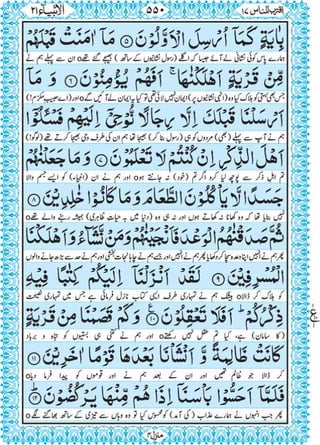 اقترب للناس ۱۷ ۵۵۰ الانبیآء ۲۱
بِاٰيَةٍ كَمَاۤ اُرْسِلَ الْاَوَّلُوْنَ ۵ مَاۤ اٰمَنَتْ قَبْلَهُمْ
نشانی ہمارے پاس لے آئے جیسا کہ اگلے (رسول نشانیوں کے ساتھ) بھیجے گئے تھے o ان سے پہلے ہم نے
مِّنْ قَرْيَةٍ اَهْلَكْنٰهَا ۚ اَفَهُمْ يُؤْمِنُوْنَ ۶ وَ مَاۤ
جس بستی کو ہلاک کیا وہ ایمان نہیں لائی تھی تو کیا یہ ایمان لے آئیں گے o اور
اَرْسَلْنَا قَبْلَكَ اِلَّا رِجَالًا نُّوْحِيْۤ اِلَيْهِمْ فَسْـَٔلُوْۤا
ہم نے آپ سے پہلے (بھی) مردوں کو ہی (رسول بنا کر) بھیجا تھا ہم ان کی طرف وحی بھیجا کرتے تھے (لوگو!)
اَهْلَ الذِّكْرِ اِنْ كُنْتُمْ لَا تَعْلَمُوْنَ ۷ وَ مَا جَعَلْنٰهُمْ
تم اہل ذکر سے پوچھ لیا کرو اگر تم (خود) نہ جانتے ہو o اور ہم نے ان (انبیاء) کو ایسے جسم والا
جَسَدًا لَّا يَاْكُلُوْنَ الطَّعَامَ وَ مَا كَانُوْا خٰلِدِيْنَ ۸
نہیں بنایا تھا کہ وہ کھانا نہ کھاتے ہوں اور نہ ہی وہ (دنیا میں بہ حیات ظاہری) ہمیشہ رہنے والے تھے o
ثُمَّ صَدَقْنٰهُمُ الْوَعْدَ فَاَنْجَيْنٰهُمْ وَ مَنْ نَّشَآءُ وَ اَهْلَكْنَا
پھر ہم نے انہیں اپنا وعدہ سچا کر دکھایا پھر ہم نے انہیں اور جسے ہم نے چاہا نجات بخشی اور ہم نے حد سے بڑھ جانے والوں
الْمُسْرِفِيْنَ ۹ لَقَدْ اَنْزَلْنَاۤ اِلَيْكُمْ كِتٰبًا فِيْهِ
کو ہلاک کر ڈالا o بیشک ہم نے تمہاری طرف ایسی کتاب نازل فرمائی ہے جس میں تمہاری نصیحت
ذِكْرُكُمْ ؕ اَفَلَا تَعْقِلُوْنَ ۱۰ وَ كَمْ قَصَمْنَا مِنْ قَرْيَةٍ
(کا سامان) ہے، کیا تم عقل نہیں رکھتے o اور ہم نے کتنی ہی بستیوں کو تباہ و برباد
كَانَتْ ظَالِمَةً وَّ اَنْشَاْنَا بَعْدَهَا قَوْمًا اٰخَرِيْنَ ۱۱
کر ڈالا جو ظالم تھیں اور ان کے بعد ہم نے اور قوموں کو پیدا فرما دیا o
فَلَمَّاۤ اَحَسُّوْا بَاْسَنَاۤ اِذَا هُمْ مِّنْهَا يَرْكُضُوْنَ ۱۲
پھر جب انہوں نے ہمارے عذاب (کی آمد) کو محسوس کیا تو وہ وہاں سے تیزی کے ساتھ بھاگنے لگے o
منزل ۴